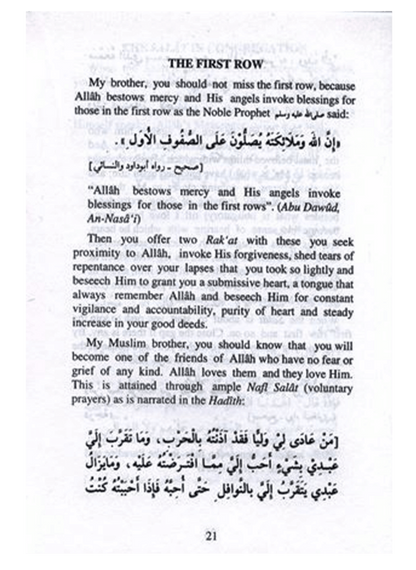 THE FIRST ROW
My brother, you should not miss the first row, because
Allâh bestows mercy and His angels invoke blessings for
those in the first row as the Noble Prophet صلى الله عليه وسلم said:
«إِنَّ الله وَمَلَائِكَتَهُ يُصَلُّونَ عَلَى الصُّفُوفِ الأُوَلِ».
[صحيح - رواه أبوداود والنسائي]
“Allâh bestows mercy and His angels invoke
blessings for those in the first rows”. (Abu Dawûd,
An-Nasâ‘i)
Then you offer two Rak'at with these you seek
proximity to Allâh, invoke His forgiveness, shed tears of
repentance over your lapses that you took so lightly and
beseech Him to grant you a submissive heart, a tongue that
always remember Allâh and beseech Him for constant
vigilance and accountability, purity of heart and steady
increase in your good deeds.
My Muslim brother, you should know that you will
become one of the friends of Allâh who have no fear or
grief of any kind. Allâh loves them and they love Him.
This is attained through ample Nafl Salât (voluntary
prayers) as is narrated in the Hadîth:
[مَنْ عَادَى لِيْ وَلِيًّا فَقَدْ آذَنْتُهُ بِالْحَرْبِ، وَمَا تَقَرَّبَ إِلَيَّ
عَبْدِي بِشَيْءٍ أَحَبُّ إِلَيَّ مِمَّا افْتَرَضْتُهُ عَلَيْهِ، وَمَايَزَالُ
عَبْدِي يَتَقَرَّبُ إِلَيَّ بالنَّوافِلِ حَتَّى أُحِبَّهُ فَإِذَا أَحْبَبْتُهُ كُنْتُ
21